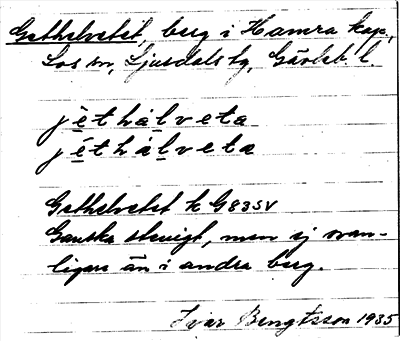 Gethelvetet, berg i Hamra kap.,
Los sn, Ljusdals tg, Gävleb. l.
jèthàlveta
jéthàlveta
Gethelvetet k G83SV
Ganska stenigt, men ej svan-
ligare än i andra berg.
Ivar Bengtsson 1935